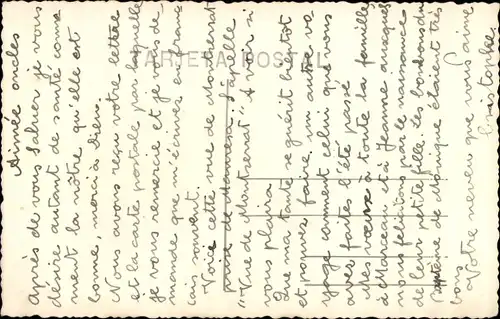 TARJETA POSTAL
Aimée oncles
Après de vous saluer je vous
désire autant de santé com
ment la nôtre qu'elle est
bonne, merci à Dieu.
Nous avons reçu votre lettre
et la carte postale par laquelle
je vous remercie et je vous de
mande que m'écrives en fran
çais souvent.
Voici cette vue de Monserrat
prise de Manresa. S'apelle
"Vue de Montserrat" A voir si
vous plaira.
Que ma tante se guérit bientot
et pouvez faire un autre vo
yage comment celui que vous
avez faites l'été passé
Mes vœux à toute la famille
à Marceau et à Jeanne auxquels
nous felicitons par le naissance
de leur petite fille. Les bonbons du
baptême de Monique étaient très
bons
Votre neveu que vous aime